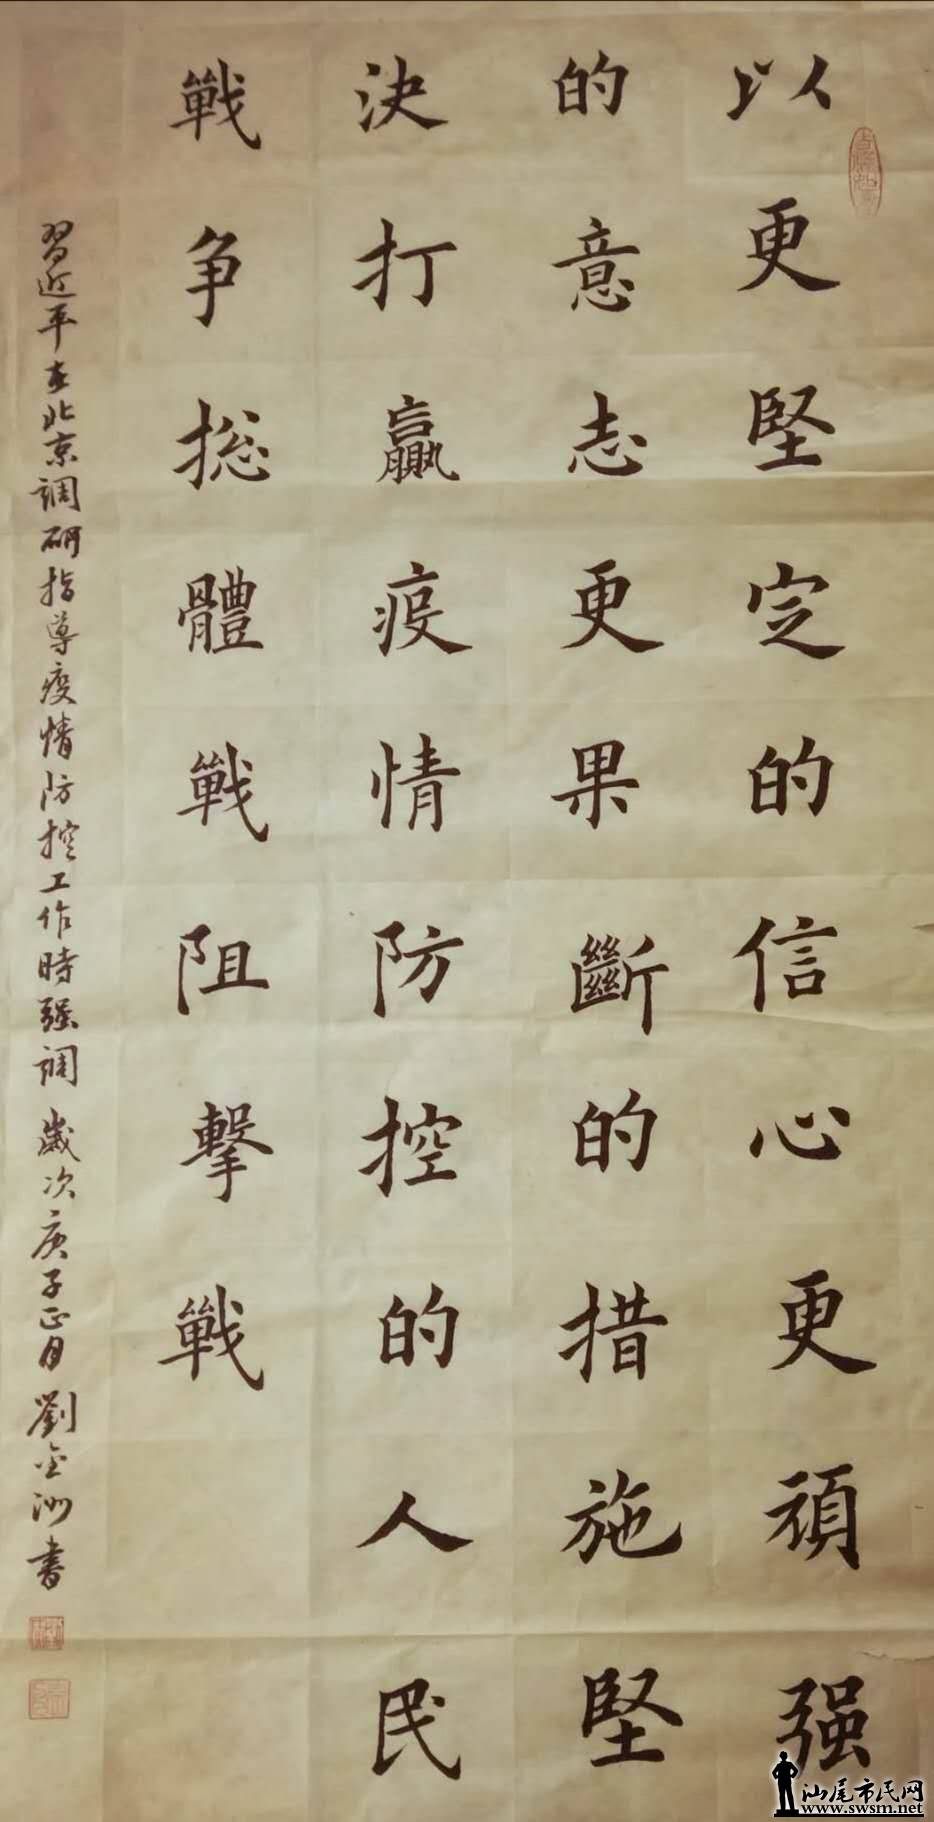 以更堅定的信心更頑强
的意志更果斷的措施堅
決打贏疫情防控的人民
戰争總體戰阻擊戰
習近平在北京調研指導疫情防控工作時强調 歲次庚子正月 劉金洲書
汕尾市民网
www.swsm.net